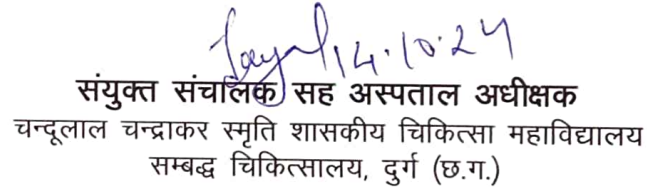 14.10.24
संयुक्त संचालक सह अस्पताल अधीक्षक
चन्दूलाल चन्द्राकर स्मृति शासकीय चिकित्सा महाविद्यालय
सम्बद्ध चिकित्सालय, दुर्ग (छ.ग.)